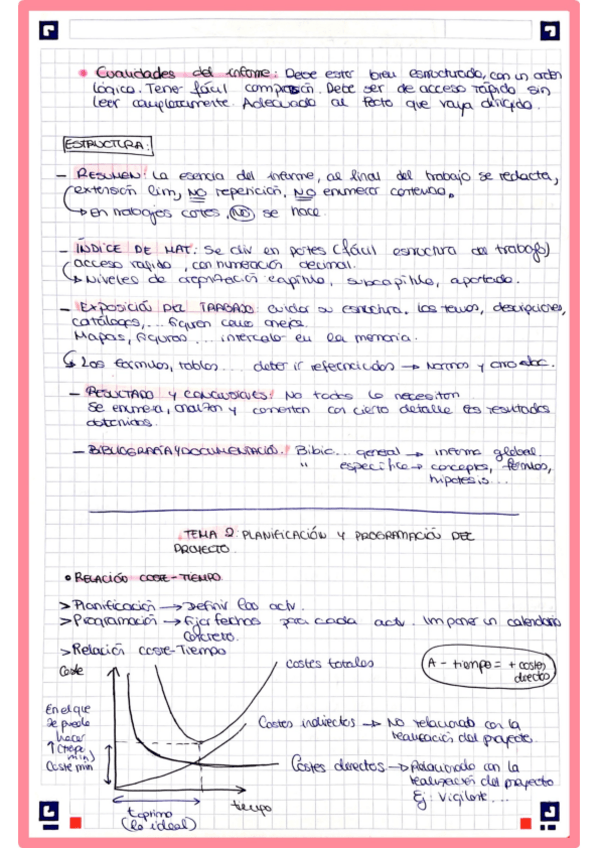 • Cualidades del informe: Debe estar bien estructurado, con un orden
lógico. Tener fácil comprensión. Debe ser de acceso rápido sin
leer completamente. Adecuado al fecto que vaya dirigido.
ESTRUCTURA:
– RESUMEN: La esencia del informe, al final del trabajo se redacta,
extensión lim, NO repetición, NO enumerar contenido.
↳ en trabajos cortos, NO se hace.
– ÍNDICE DE MAT: Se div en partes (fácil estructura del trabajo)
acceso rápido, con numeración decimal.
↳ Niveles de organización capítulo, subcapítulo, apartado.
– EXPOSICIÓN DEL TRABAJO: cuidar su estructura, los textos, descripciones,
catálogos, ... figuren como anejo.
Mapas, figuras ... intercalar en la memoria.
↳ Las fórmulas, tablas ... deben ir referenciadas → Normas y abc.
– RESULTADO Y CONCLUSIONES: No todos lo necesitan
Se enumera, analizan y comentan con cierto detalle los resultados
obtenidos.
– BIBLIOGRAFÍA Y DOCUMENTACIÓN: Biblio... general → informa global...
" específica → conceptos, fórmulas,
hipótesis...
TEMA 2: PLANIFICACIÓN Y PROGRAMACIÓN DEL
PROYECTO
• RELACIÓN COSTE-TIEMPO
> Planificación → Definir las act.
> Programación → Fijar fechas para cada act. Imponer un calendario
concreto.
> Relación coste-Tiempo
Coste
costes totales
A - tiempo = + costes
directos
En el que
se puede
hacer
min)
Coste min
Costes indirectos → No relacionado con la
realización del proyecto.
Costes directos → Relacionado con la
realización del proyecto
Ej: Vigilante...
tiempo
t óptimo
(lo ideal)